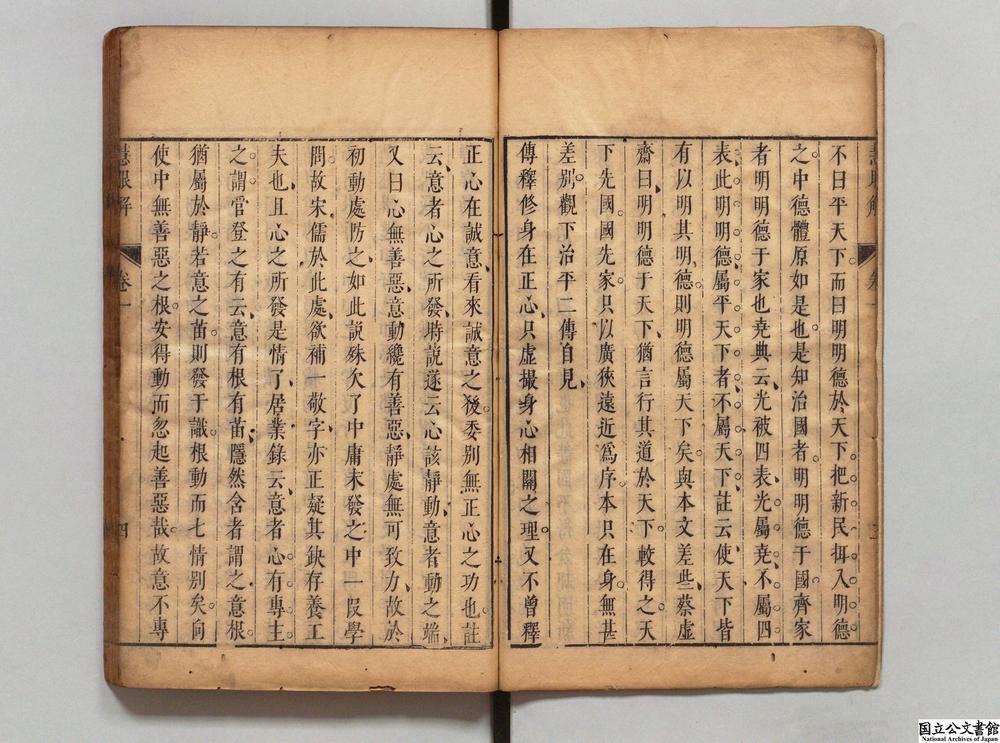 不曰平天下而曰明明德於天下把新民揖入明德
之中德體原如是也是知治國者明明德于國齊家
者明明德于家也堯典云光被四表光屬堯不屬四
表此明明德屬平天下者不屬天下註云使天下皆
有以明其明德則明德屬天下矣與本文差些蔡虛
齋曰明明德于天下猶言行其道於天下較得之天
下先國國先家只以廣狹遠近爲序本只在身無甚
差別觀下治平二傳自見
傳釋修身在正心只虛撮身心相關之理又不曾釋
正心在誠意看來誠意之後委別無正心之功也註
云意者心之所發時說遂云心該靜動意者動之端
又曰心無善惡意動纔有善惡靜處無可致力故於
初動處防之如此說殊欠了中庸未發之中一段學
問故宋儒於此處欲補一敬字亦正疑其缺存養工
夫也且心之所發是情了居業錄云意者心有專主
之謂管登之有云意有根有苗隱然含者謂之意根
猶屬於靜若意之苗則發于識根動而七情別矣向
使中無善惡之根安得動而忽起善惡哉故意不專
慧眼解 卷一 四
国立公文書館
National Archives of Japan